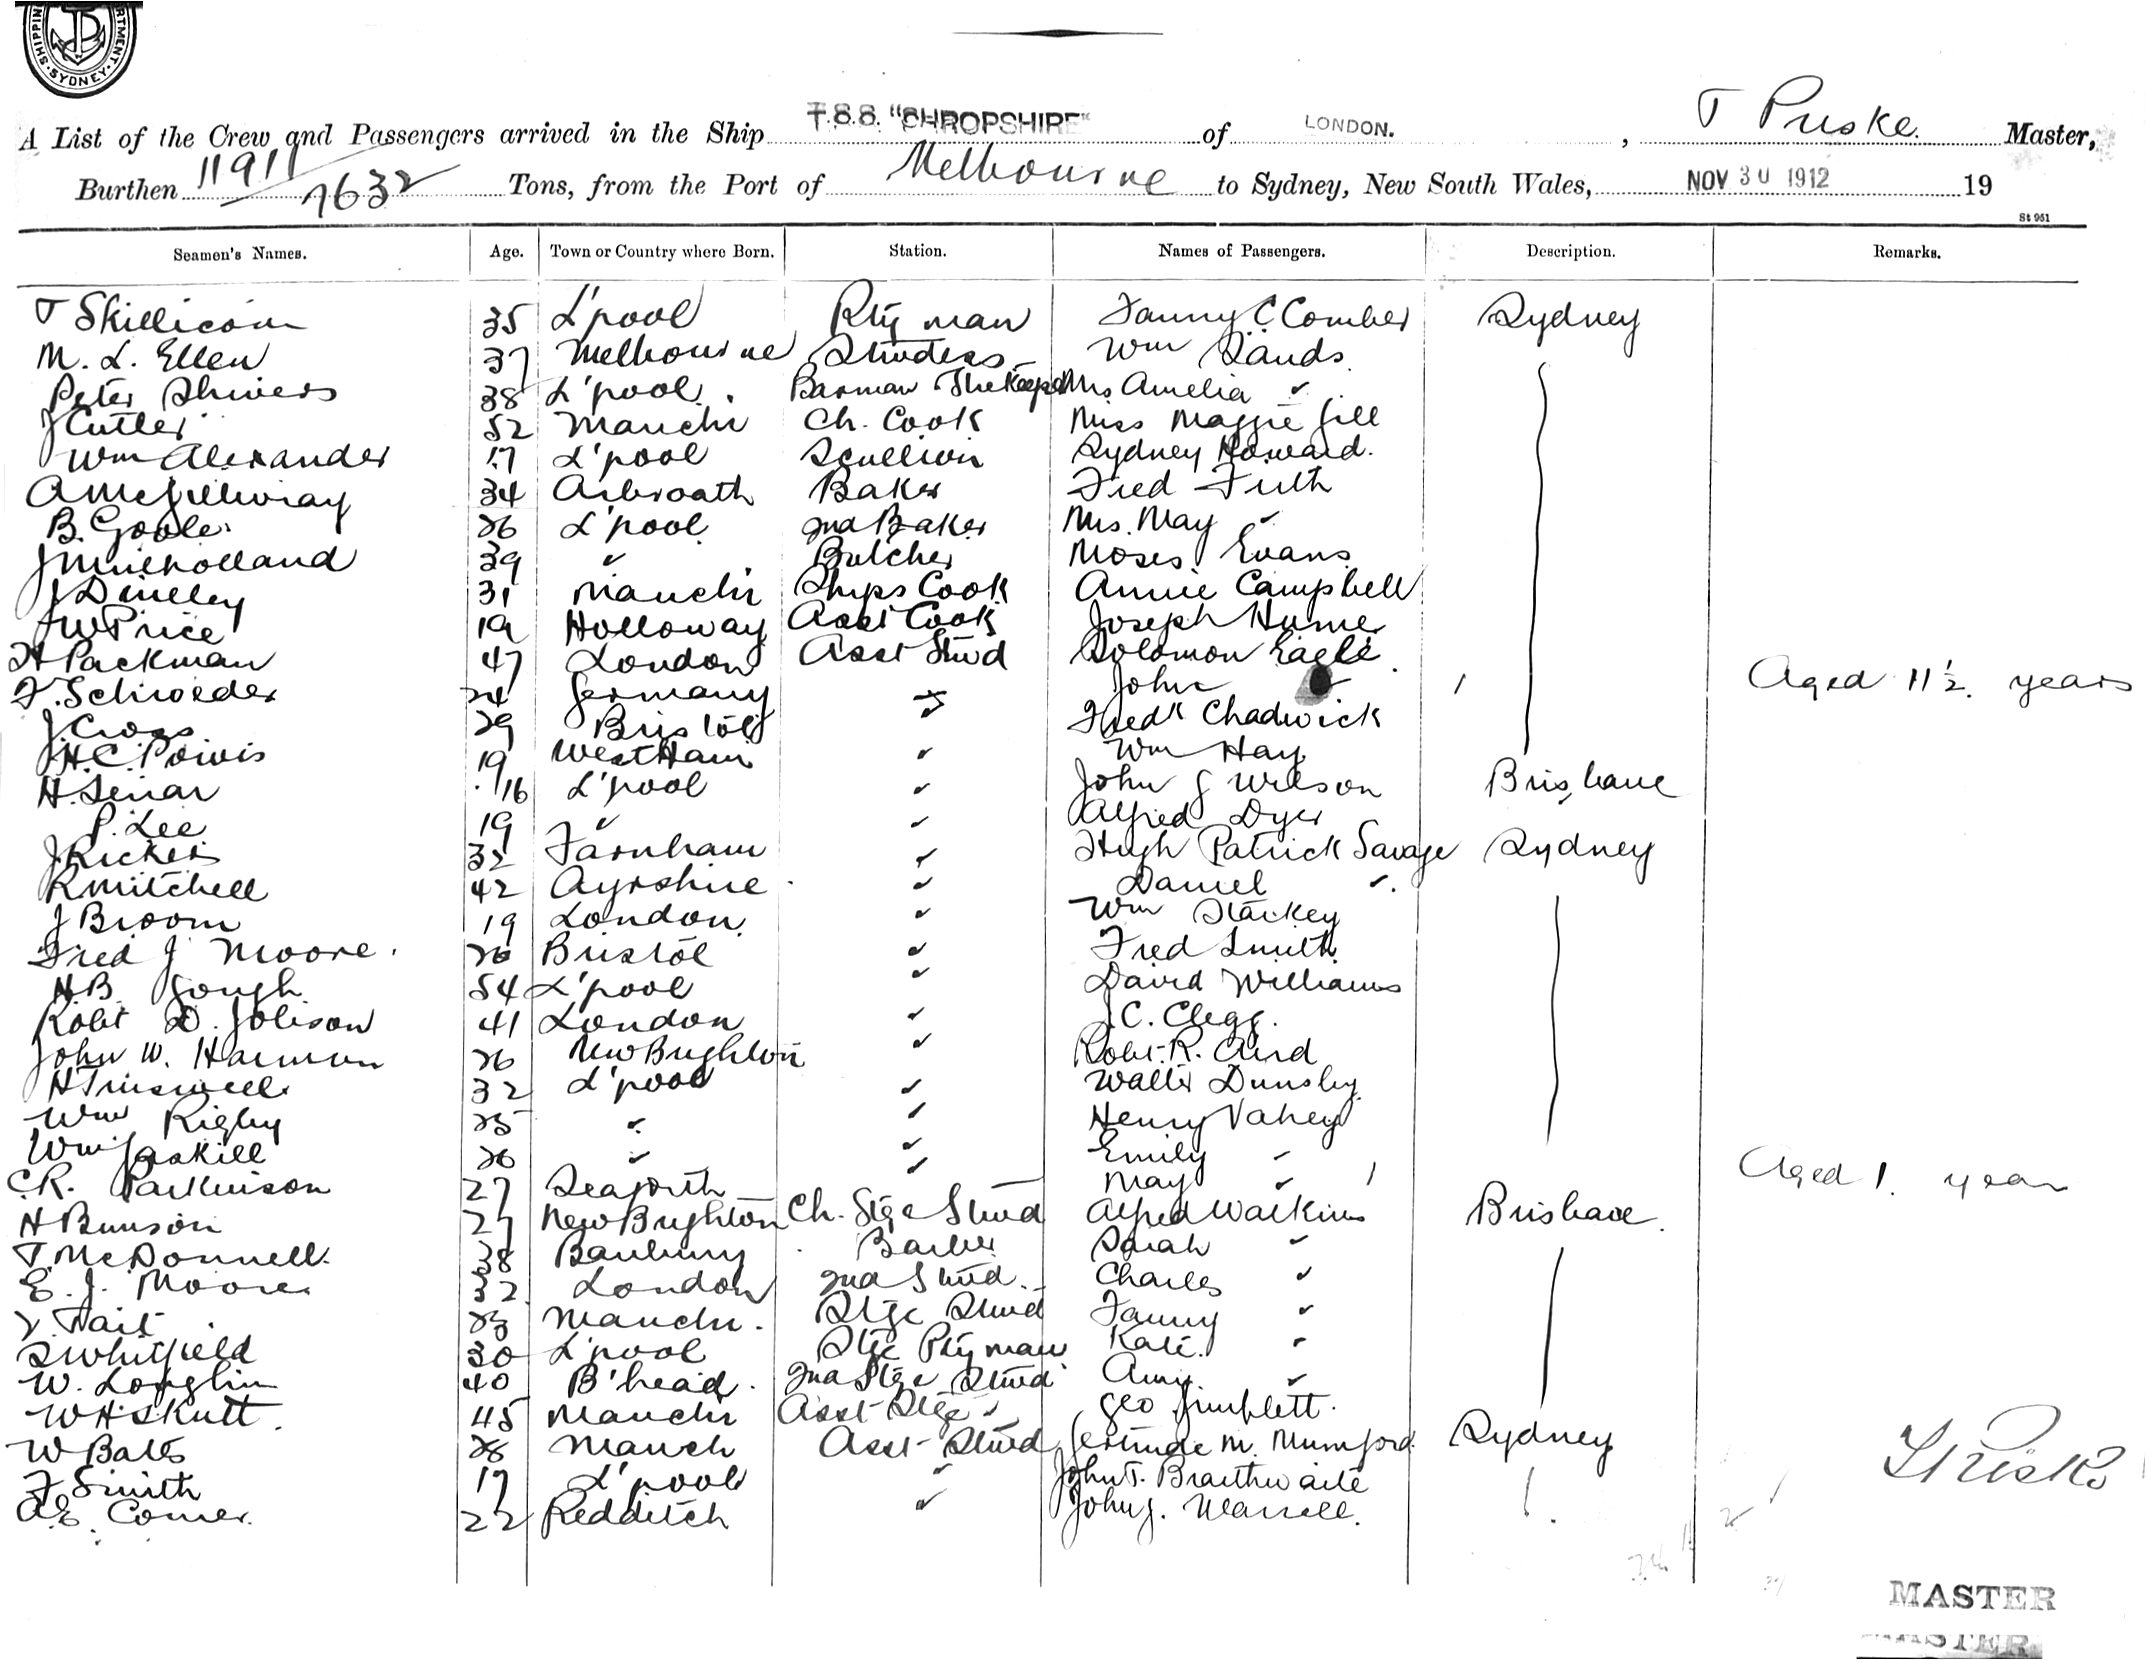 SHIPPING DEPARTMENT SYDNEY
A List of the Crew and Passengers arrived in the Ship T.S.S. "SHROPSHIRE" of LONDON. , Master,
Burthen 11911 / 7632 Tons, from the Port of Melbourne to Sydney, New South Wales, NOV 30 1912 19
St 961
Seamen's Names. Age. Town or Country where Born. Station. Names of Passengers. Description. Remarks.
T Skillicorn 35 L'pool Pty man Fanny C Comber Sydney
M. L. Ellen 37 Melbourne Stwdess Wm Sands
Peter Shivers 38 L'pool. Barman Mrs Amelia "
J Cutler 52 Manchr Ch. Cook Miss Maggie Gill
Wm Alexander 17 L'pool Scullion Sydney Howard.
A McGillivray 34 Arbroath Baker Fred Firth
B. Goole. 26 L'pool 2nd Baker Mrs. May "
J Mulholland 39 " Butcher Moses Evans
J 31 Manchr Ships Cook Annie Campbell
J W Price 19 Holloway Asst Cook Joseph Hume
H Packman 47 London Asst Stwd Solomon Eagle
F. Schroeder 24 Germany " John " 1 Aged 11 1/2 years
J. Cross 29 Bristol " Fredk Chadwick
H. C. Powis 19 West Ham " Wm Hay
H. Senar 16 L'pool " John G Wilson Brisbane
P. Lee 19 " " Alfred Dyer
J Rickets 32 Farnham " Hugh Patrick Savage Sydney
R Mitchell 42 Ayrshire " Daniel "
J Broom 19 London " Wm Starkey
Fred J Moore. 26 Bristol " Fred Smith
H B Gough 54 L'pool " David Williams
Robt D. 41 London " J. C. Clegg.
John W. Harmon 26 New Brighton " Robt. R. Aird
H 32 L'pool " Walter Dunsby
Wm Rigby 25 " " Henry Vahey
Wm Gaskill 26 " " Emily "
C. R. Parkinson 27 Seaforth " May " 1 Aged 1 year
H Bunson 27 New Brighton Ch. Stge Stwd Alfred Watkins Brisbane.
T. McDonnell. 38 Banbury Barber Sarah "
E. J. Moore. 32 London 2nd Stwd. Charles "
Tait 23 Manchr. Stge Stwd Fanny "
S Whitfield 30 L'pool Stge Pty man Kate "
W. Loughlin 40 B'head. 2nd Stge Stwd Amy "
W H Skutt. 45 Manchr Asst Stge " Geo Gimblett.
W Bates 28 Manch Asst Stwd Gertrude M. Mumford Sydney
F Smith 17 L'pool " John T. Braithwaite
A. E. Comer. 22 Redditch " John J.
MASTER
MASTER